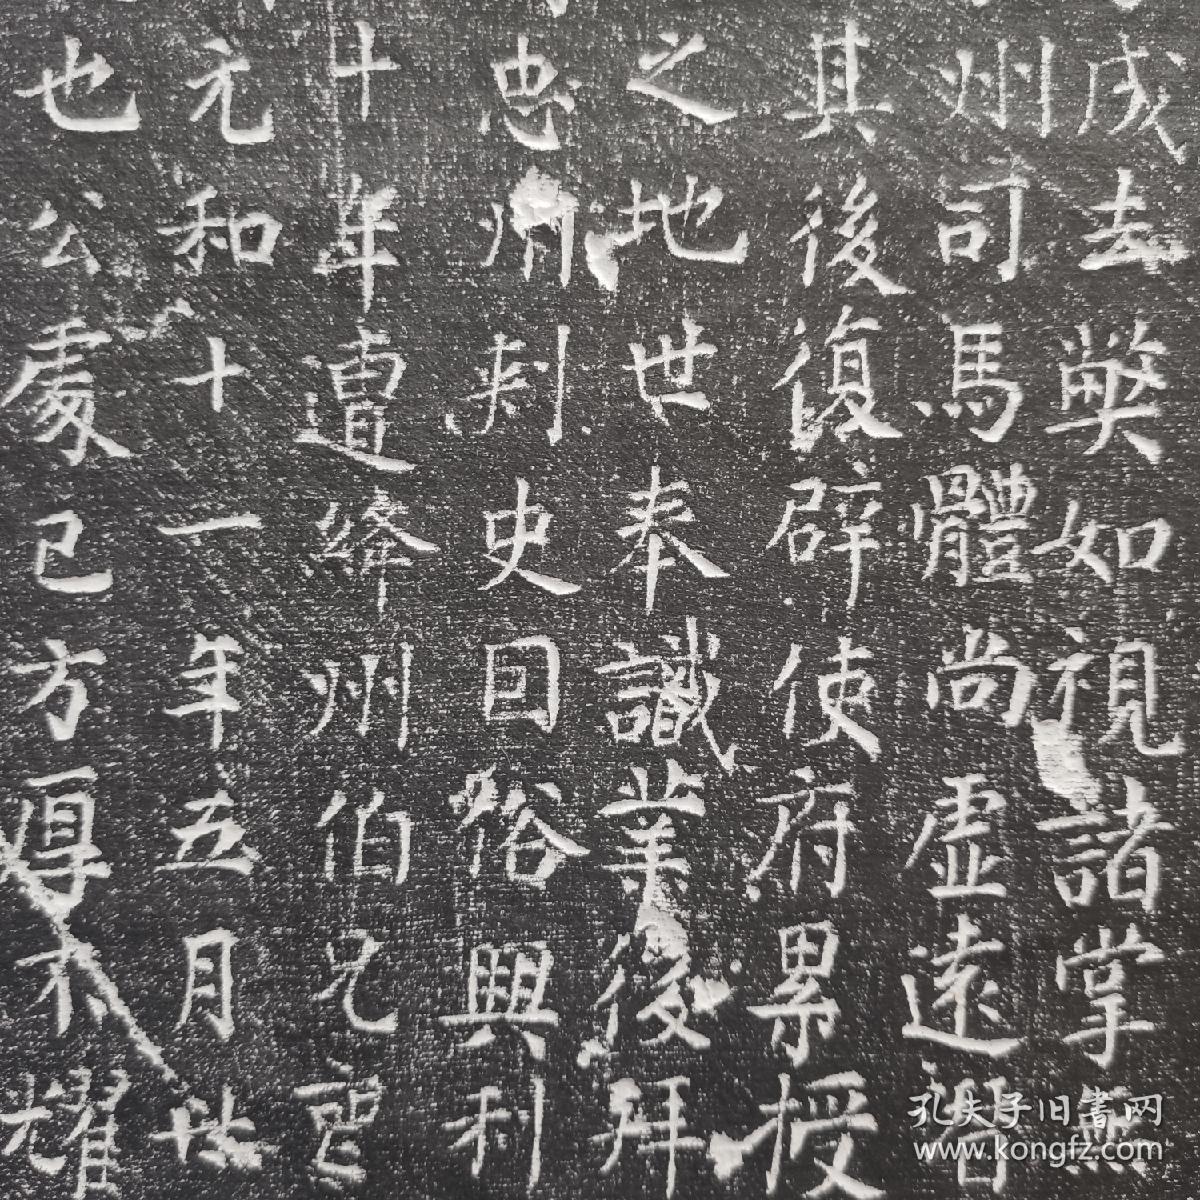 成去弊如視諸掌無
州司馬體尚虛遠
其後復辟使府累授
之地世奉業後拜
忠州刺史因俗興利
十年遭絳州伯兄
元和十一年五月
也公處己方厚不耀
孔夫子旧書网
www.kongfz.com